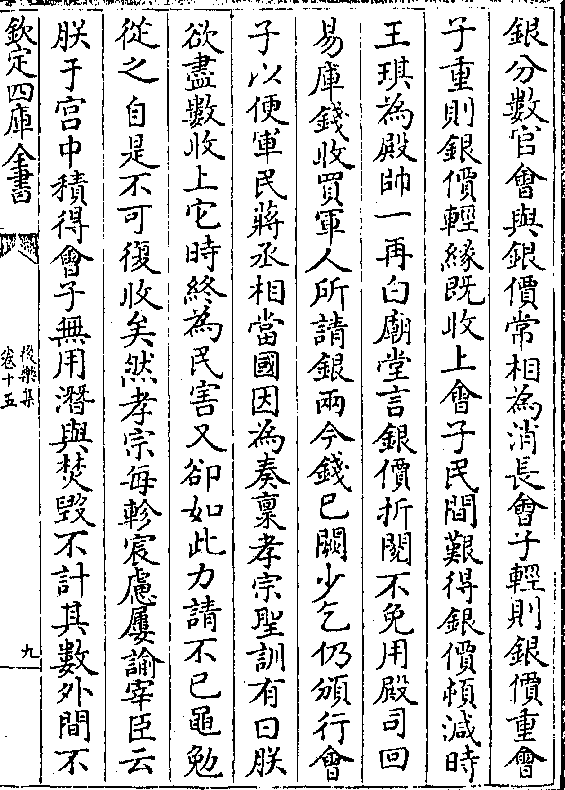 銀分數官會與銀價常相為消長會子輕則銀價重會
子重則銀價輕緣既收上會子民間艱得銀價頓減時
王琪為殿帥一再白廟堂言銀價折閱不免用殿司回
易庫錢收買軍人所請銀兩今錢已闕少乞仍頒行會
子以便軍民蔣丞相當國因為奏稟孝宗聖訓有曰朕
欲盡數收上它時終為民害又卻如此力請不已黽勉
從之自是不可復收矣然孝宗每軫宸慮屢諭宰臣云
朕于宫中積得會子無用潛與焚毀不計其數外間不
欽定四庫全書
後樂集
卷十五
九